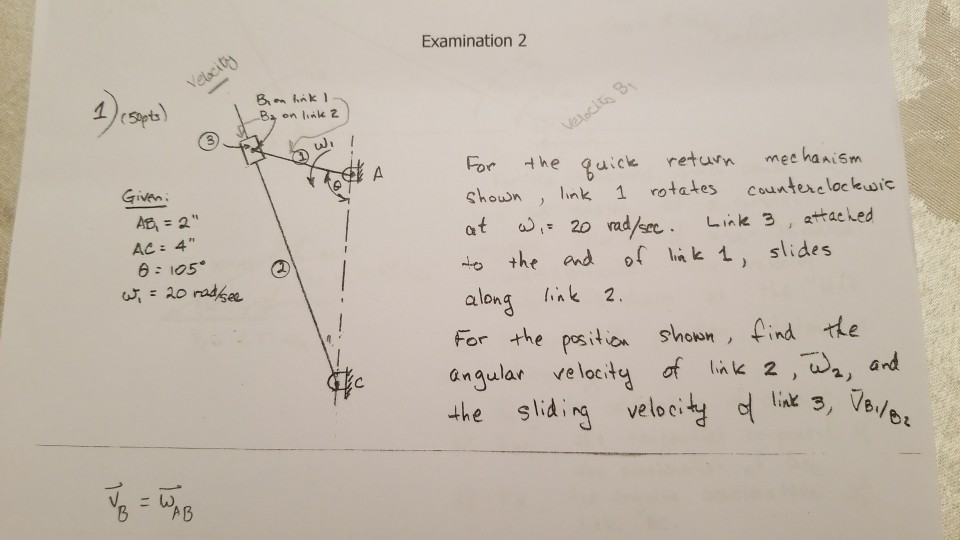 Examination 2
Velocity
1) (50pts)
B₁ on link 1
B₂ on link 2
3
1
ω₁
A
θ
2
C
Given:
AB₁ = 2"
AC = 4"
θ = 105°
ω₁ = 20 rad/sec
For the quick return mechanism
shown, link 1 rotates counterclockwic
at ω₁ = 20 rad/sec. Link 3, attached
to the end of link 1, slides
along link 2.
For the position shown, find the
angular velocity of link 2, ω̄₂, and
the sliding velocity of link 3, V̄B₁/B₂
V⃗B = ω⃗AB